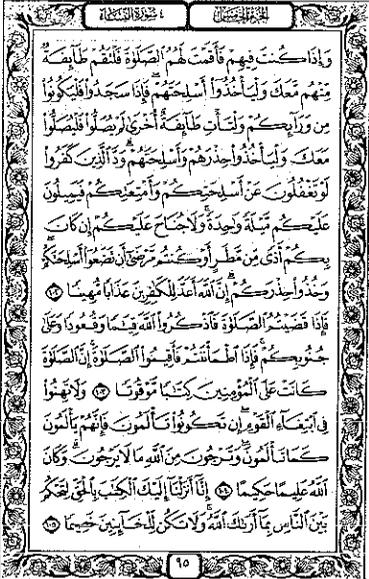 الجزء الخامس ٤ سورة النساء
وَإِذَا كُنتَ فِيهِمْ فَأَقَمْتَ لَهُمُ ٱلصَّلَوٰةَ فَلْتَقُمْ طَآئِفَةٌ
مِّنْهُم مَّعَكَ وَلْيَأْخُذُوٓا۟ أَسْلِحَتَهُمْ فَإِذَا سَجَدُوا۟ فَلْيَكُونُوا۟
مِن وَرَآئِكُمْ وَلْتَأْتِ طَآئِفَةٌ أُخْرَىٰ لَمْ يُصَلُّوا۟ فَلْيُصَلُّوا۟
مَعَكَ وَلْيَأْخُذُوا۟ حِذْرَهُمْ وَأَسْلِحَتَهُمْ ۗ وَدَّ ٱلَّذِينَ كَفَرُوا۟
لَوْ تَغْفُلُونَ عَنْ أَسْلِحَتِكُمْ وَأَمْتِعَتِكُمْ فَيَمِيلُونَ
عَلَيْكُم مَّيْلَةً وَٰحِدَةً ۚ وَلَا جُنَاحَ عَلَيْكُمْ إِن كَانَ
بِكُمْ أَذًى مِّن مَّطَرٍ أَوْ كُنتُم مَّرْضَىٰٓ أَن تَضَعُوٓا۟ أَسْلِحَتَكُمْ ۖ
وَخُذُوا۟ حِذْرَكُمْ ۗ إِنَّ ٱللَّهَ أَعَدَّ لِلْكَٰفِرِينَ عَذَابًا مُّهِينًا ١٠٢
فَإِذَا قَضَيْتُمُ ٱلصَّلَوٰةَ فَٱذْكُرُوا۟ ٱللَّهَ قِيَٰمًا وَقُعُودًا وَعَلَىٰ
جُنُوبِكُمْ ۚ فَإِذَا ٱطْمَأْنَنتُمْ فَأَقِيمُوا۟ ٱلصَّلَوٰةَ ۚ إِنَّ ٱلصَّلَوٰةَ
كَانَتْ عَلَى ٱلْمُؤْمِنِينَ كِتَٰبًا مَّوْقُوتًا ١٠٣ وَلَا تَهِنُوا۟
فِى ٱبْتِغَآءِ ٱلْقَوْمِ ۖ إِن تَكُونُوا۟ تَأْلَمُونَ فَإِنَّهُمْ يَأْلَمُونَ
كَمَا تَأْلَمُونَ ۖ وَتَرْجُونَ مِنَ ٱللَّهِ مَا لَا يَرْجُونَ ۗ وَكَانَ
ٱللَّهُ عَلِيمًا حَكِيمًا ١٠٤ إِنَّآ أَنزَلْنَآ إِلَيْكَ ٱلْكِتَٰبَ بِٱلْحَقِّ لِتَحْكُمَ
بَيْنَ ٱلنَّاسِ بِمَآ أَرَىٰكَ ٱللَّهُ ۚ وَلَا تَكُن لِّلْخَآئِنِينَ خَصِيمًا ١٠٥
٩٥